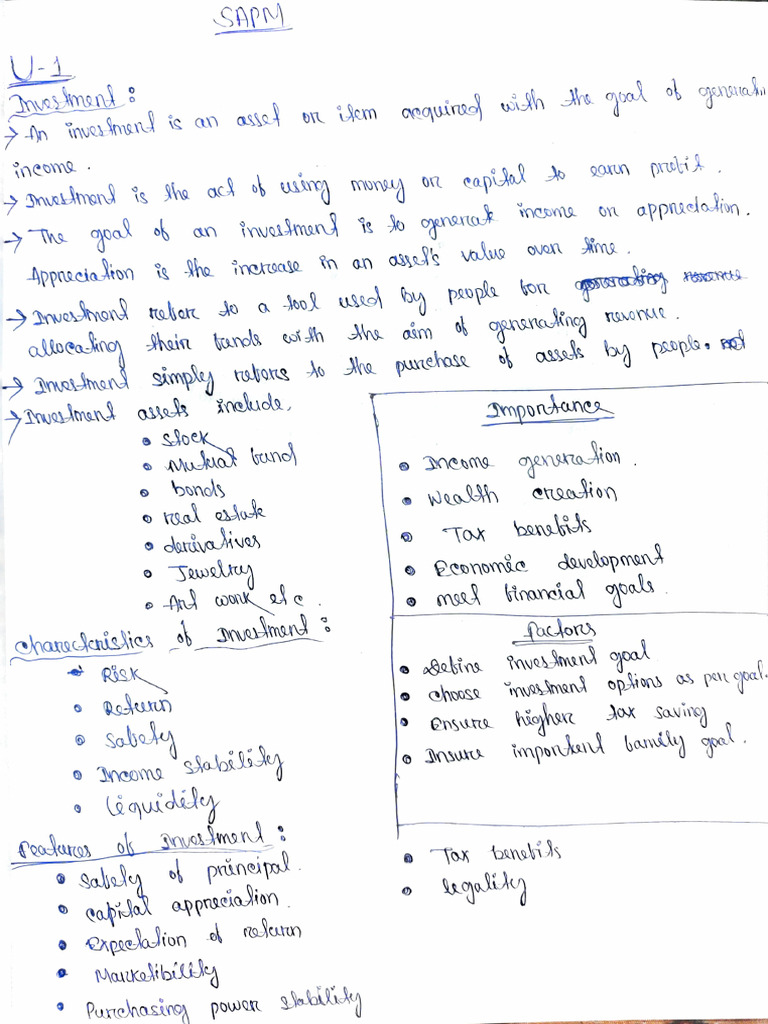 SAPM
U-1
Investment :
→ An investment is an asset or item acquired with the goal of generati
income.
→ Investment is the act of using money or capital to earn profit.
→ The goal of an investment is to generate income or appreciation.
Appreciation is the increase in an asset's value over time.
→ Investment refer to a tool used by people for generating revenue
allocating their funds with the aim of generating revenue.
→ Investment simply refers to the purchase of assets by people. not
→ Investment assets include,
• Stock
• Mutual fund
• bonds
• real estate
• derivatives
• Jewelry
• Art work etc.
Importance
• Income generation.
• Wealth creation
• Tax benefits
• Economic development
• meet financial goals.
Factors
• Define investment goal
• Choose investment options as per goal.
• Ensure higher tax saving
• Insure important family goal.
Charectristics of Investment :
• Risk
• Return
• Safety
• Income stability
• Liquidity
Features of Investment :
• Safety of principal.
• Capital appreciation.
• Expectation of return
• Marketibility
• Purchasing power stability
• Tax benefits
• legality